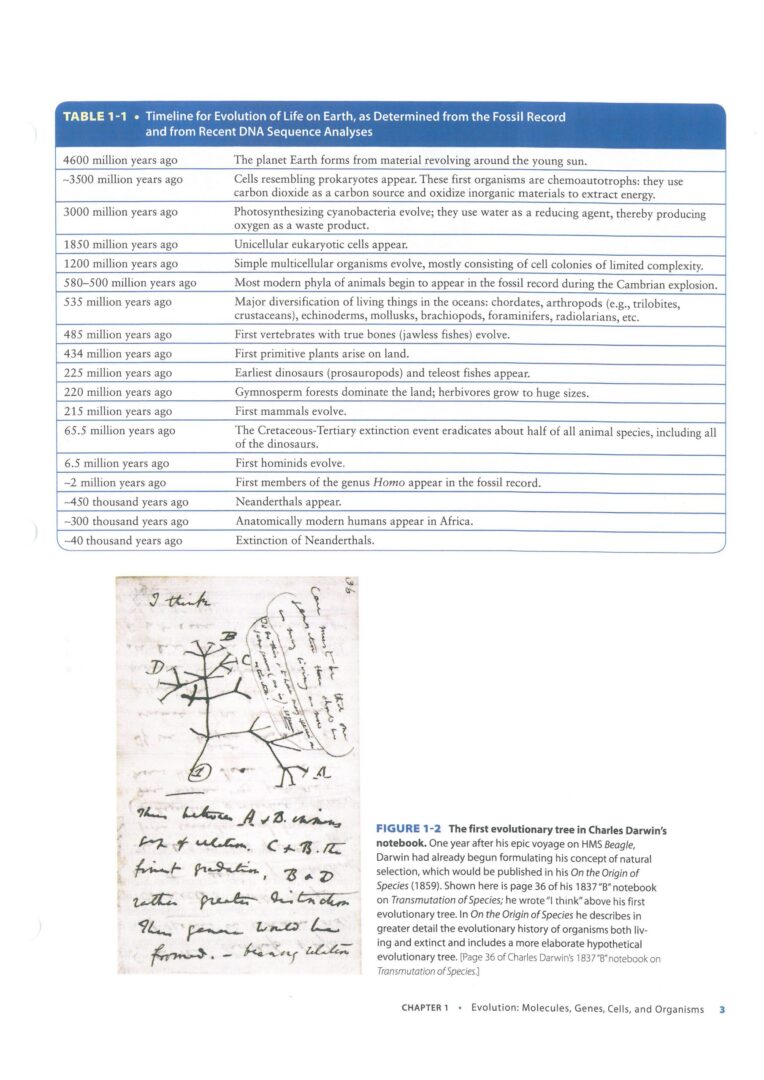 TABLE 1-1 • Timeline for Evolution of Life on Earth, as Determined from the Fossil Record
and from Recent DNA Sequence Analyses
4600 million years ago The planet Earth forms from material revolving around the young sun.
~3500 million years ago Cells resembling prokaryotes appear. These first organisms are chemoautotrophs: they use
carbon dioxide as a carbon source and oxidize inorganic materials to extract energy.
3000 million years ago Photosynthesizing cyanobacteria evolve; they use water as a reducing agent, thereby producing
oxygen as a waste product.
1850 million years ago Unicellular eukaryotic cells appear.
1200 million years ago Simple multicellular organisms evolve, mostly consisting of cell colonies of limited complexity.
580–500 million years ago Most modern phyla of animals begin to appear in the fossil record during the Cambrian explosion.
535 million years ago Major diversification of living things in the oceans: chordates, arthropods (e.g., trilobites,
crustaceans), echinoderms, mollusks, brachiopods, foraminifers, radiolarians, etc.
485 million years ago First vertebrates with true bones (jawless fishes) evolve.
434 million years ago First primitive plants arise on land.
225 million years ago Earliest dinosaurs (prosauropods) and teleost fishes appear.
220 million years ago Gymnosperm forests dominate the land; herbivores grow to huge sizes.
215 million years ago First mammals evolve.
65.5 million years ago The Cretaceous-Tertiary extinction event eradicates about half of all animal species, including all
of the dinosaurs.
6.5 million years ago First hominids evolve.
~2 million years ago First members of the genus Homo appear in the fossil record.
~450 thousand years ago Neanderthals appear.
~300 thousand years ago Anatomically modern humans appear in Africa.
~40 thousand years ago Extinction of Neanderthals.
36
I think
Case must be that one
generation then should be
as many living as now
B
C
D
A
1
Thus between A & B. immens
gap of relation. C & B. the
finest gradation, B & D
rather greater distinction
Thus genera would be
formed. — bearing relation
FIGURE 1-2 The first evolutionary tree in Charles Darwin's
notebook. One year after his epic voyage on HMS Beagle,
Darwin had already begun formulating his concept of natural
selection, which would be published in his On the Origin of
Species (1859). Shown here is page 36 of his 1837 "B" notebook
on Transmutation of Species; he wrote "I think" above his first
evolutionary tree. In On the Origin of Species he describes in
greater detail the evolutionary history of organisms both liv-
ing and extinct and includes a more elaborate hypothetical
evolutionary tree. [Page 36 of Charles Darwin's 1837 "B" notebook on
Transmutation of Species.]
CHAPTER 1 • Evolution: Molecules, Genes, Cells, and Organisms 3